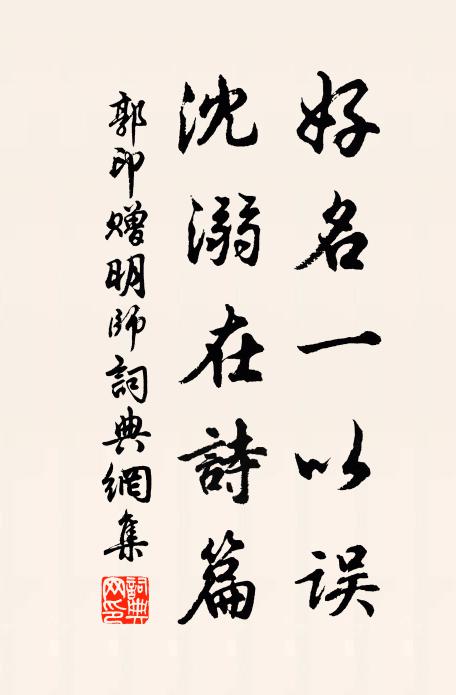 好名一以误
沈溺在詩篇
郭印贈明師詞典網集
詞典网印